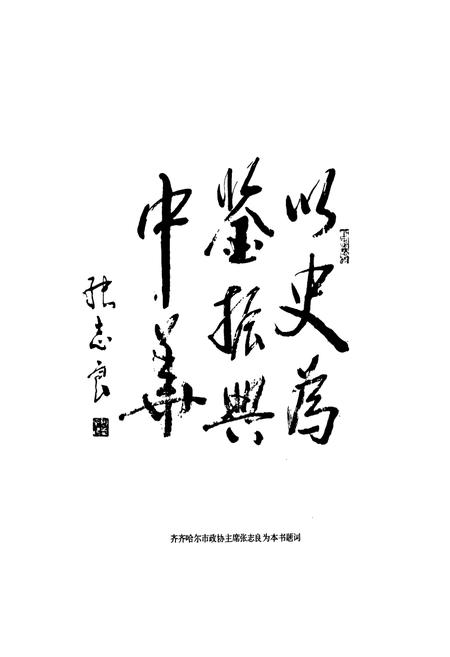 以史为
鉴振兴
中华
张志良
齐齐哈尔市政协主席张志良为本书题词